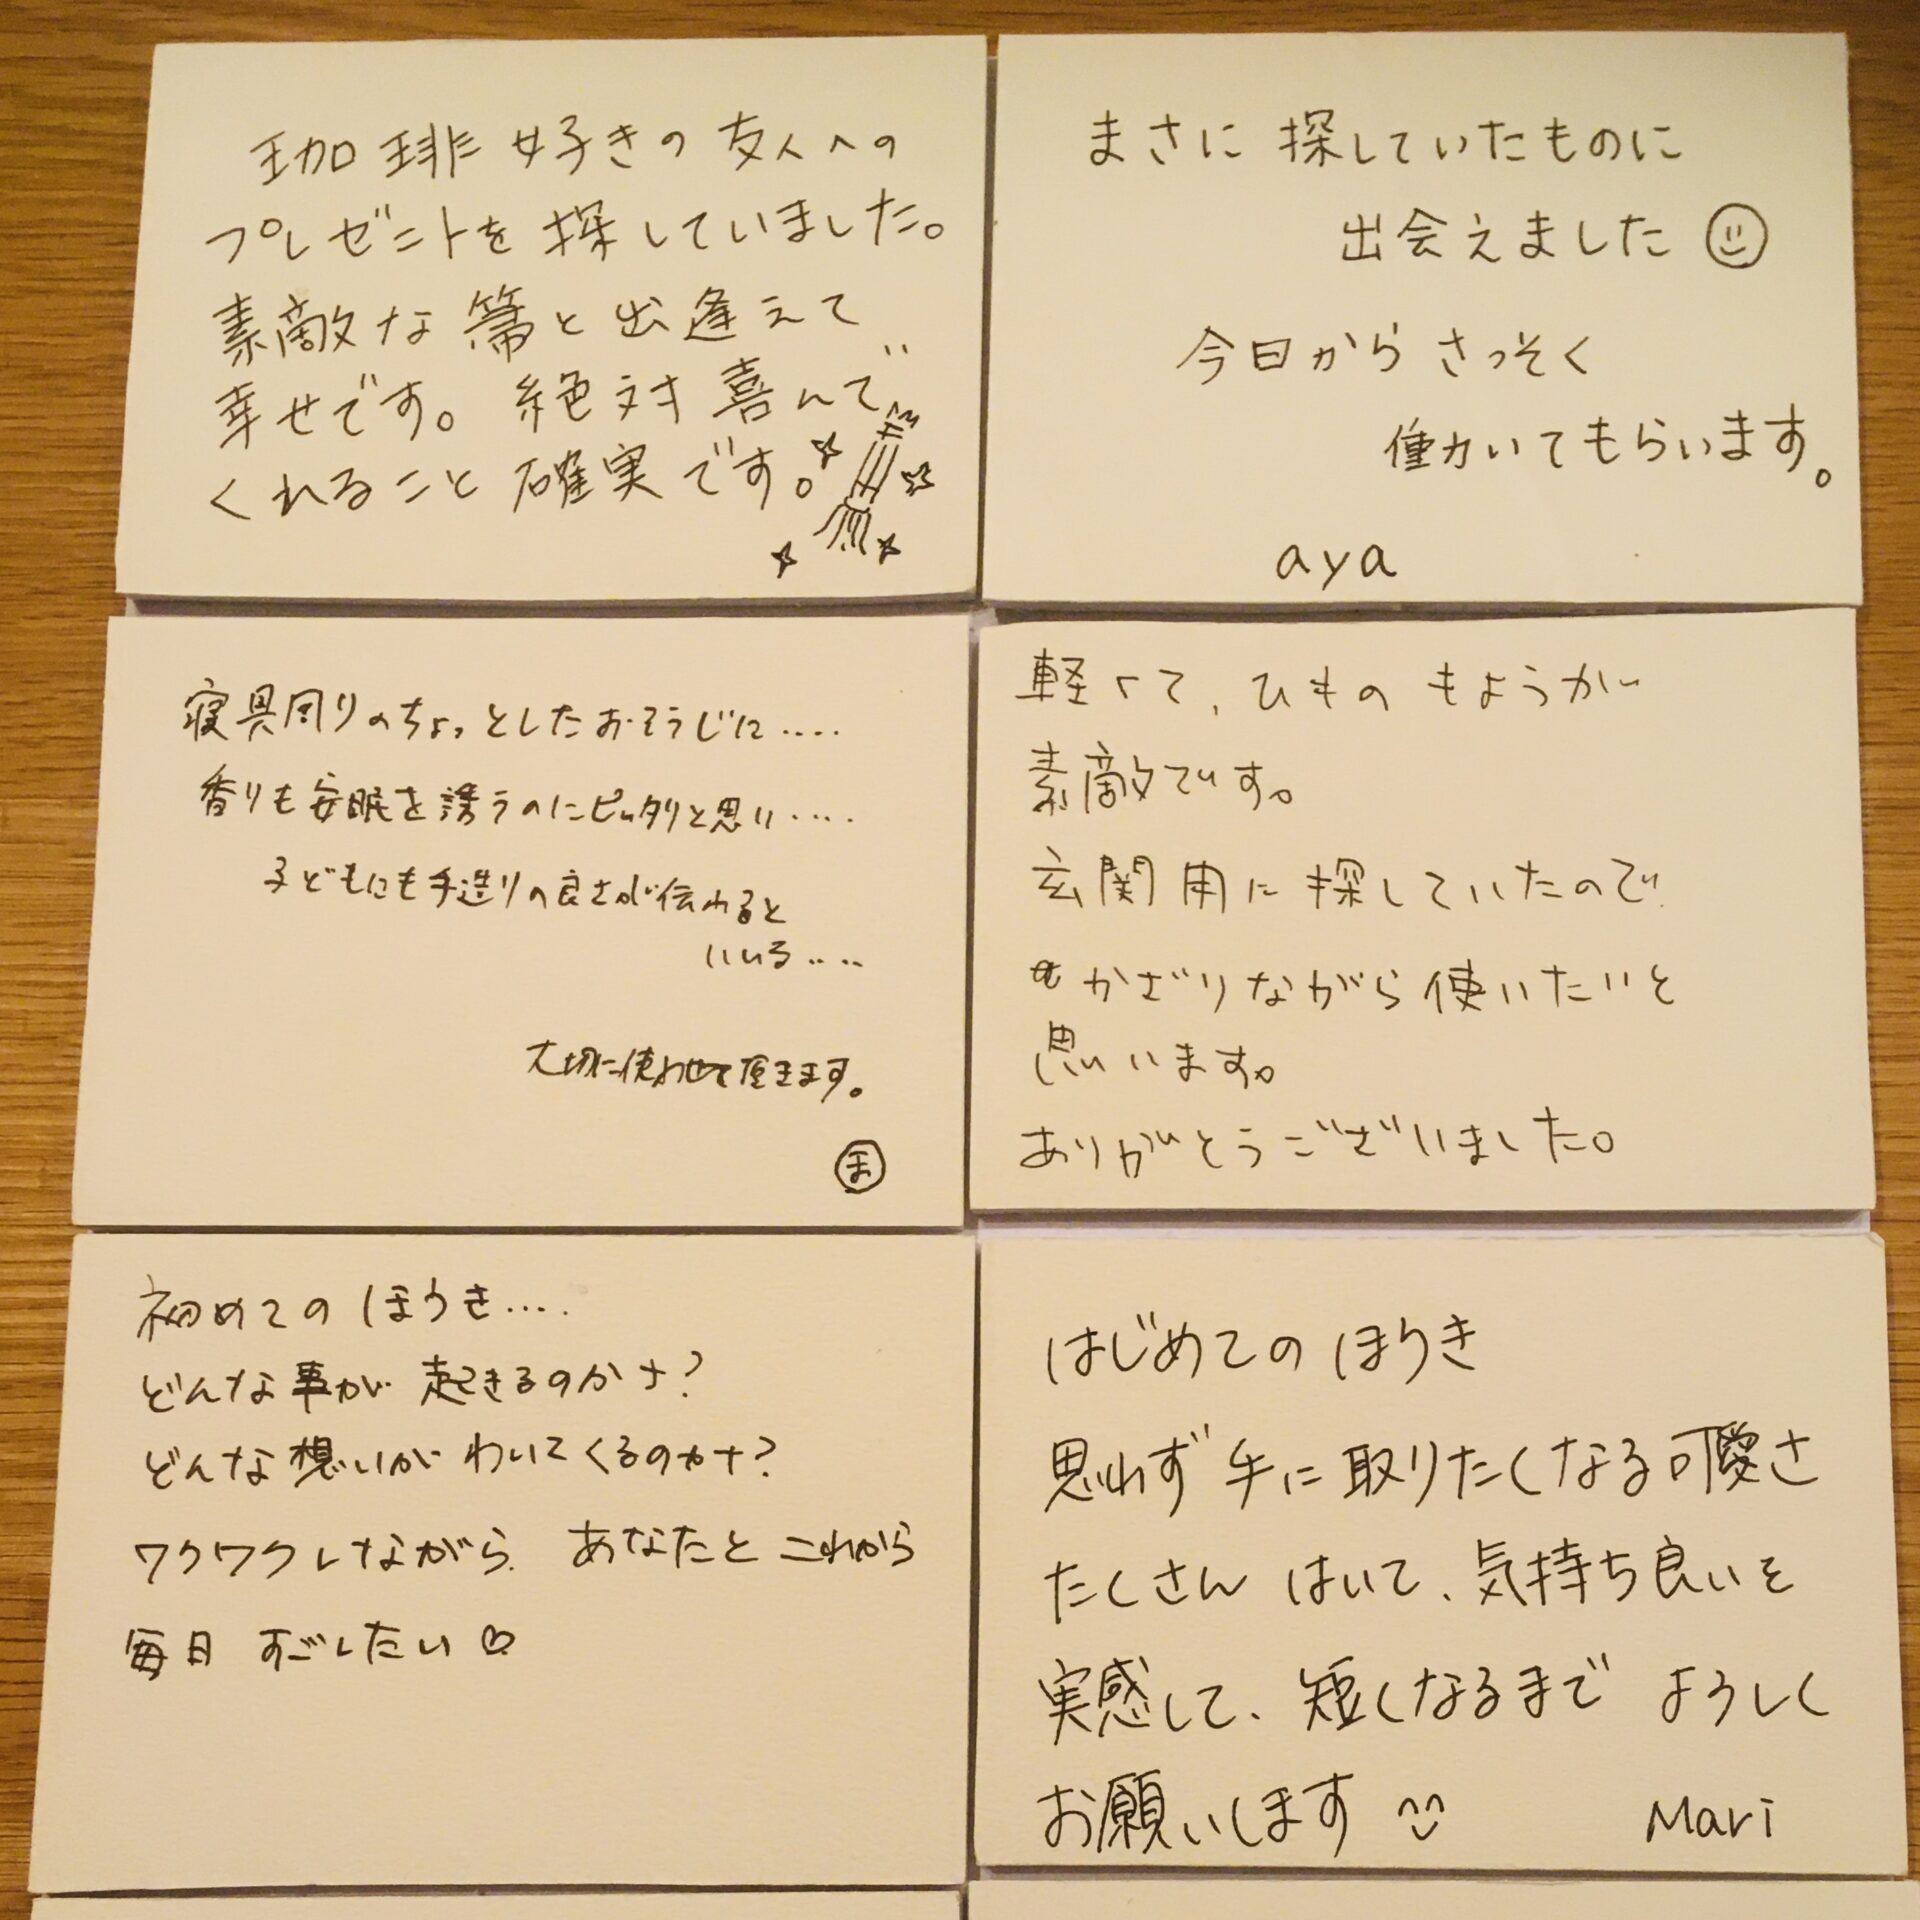 珈琲好きの友人への
プレゼントを探していました。
素敵な箒と出逢えて
幸せです。絶対喜んで
くれること確実です。
まさに探していたものに
出会えました
今日からさっそく
働かいてもらいます。
aya
寝具周りのちょっとしたおそうじに....
香りも安眠を誘うのにピッタリと思い....
子どもにも手造りの良さが伝わると
いいな....
大切に使わせて頂きます。
ま
軽くて、ひものもようが
素敵です。
玄関用に探していたので
かざりながら使いたいと
思います。
ありがとうございました。
初めてのほうき....
どんな事が起きるのかナ?
どんな想いがわいてくるのカナ?
ワクワクしながら あなたと これから
毎日 すごしたい♡
はじめてのほうき
思わず手に取りたくなる可愛さ
たくさん はいて、気持ち良いを
実感して、短くなるまで よろしく
お願いします
Mari